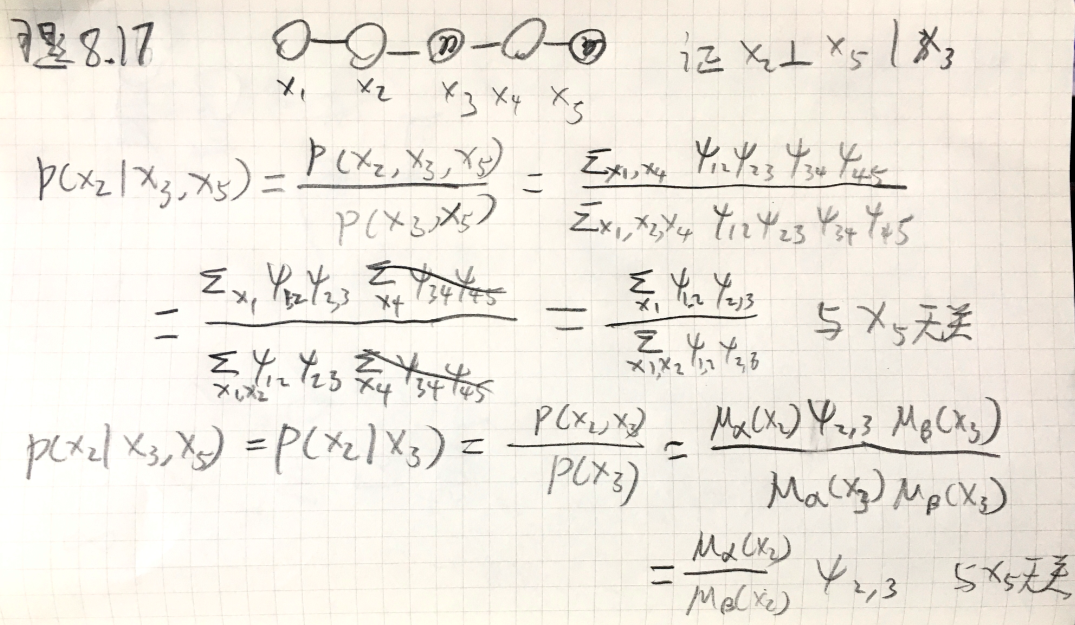 习题 8.17 证 x₂⊥x₅ | x₃
x₁ x₂ x₃ x₄ x₅
p(x₂|x₃,x₅) = p(x₂,x₃,x₅) / p(x₃,x₅) = Σ_{x₁,x₄} ψ₁₂ψ₂₃ψ₃₄ψ₄₅ / Σ_{x₁,x₂,x₄} ψ₁₂ψ₂₃ψ₃₄ψ₄₅
= Σ_{x₁} ψ₁,₂ψ₂,₃ Σ_{x₄} ψ₃₄ψ₄₅ / Σ_{x₁,x₂} ψ₁,₂ψ₂₃ Σ_{x₄} ψ₃₄ψ₄₅ = Σ_{x₁} ψ₁,₂ψ₂,₃ / Σ_{x₁,x₂} ψ₁,₂ψ₂,₃ 与x₅无关
p(x₂|x₃,x₅) = p(x₂|x₃) = p(x₂,x₃) / p(x₃) = μ_α(x₂)ψ₂,₃μ_β(x₃) / μ_α(x₃)μ_β(x₃)
= μ_α(x₂) / μ_β(x₂) ψ₂,₃ 与x₅无关